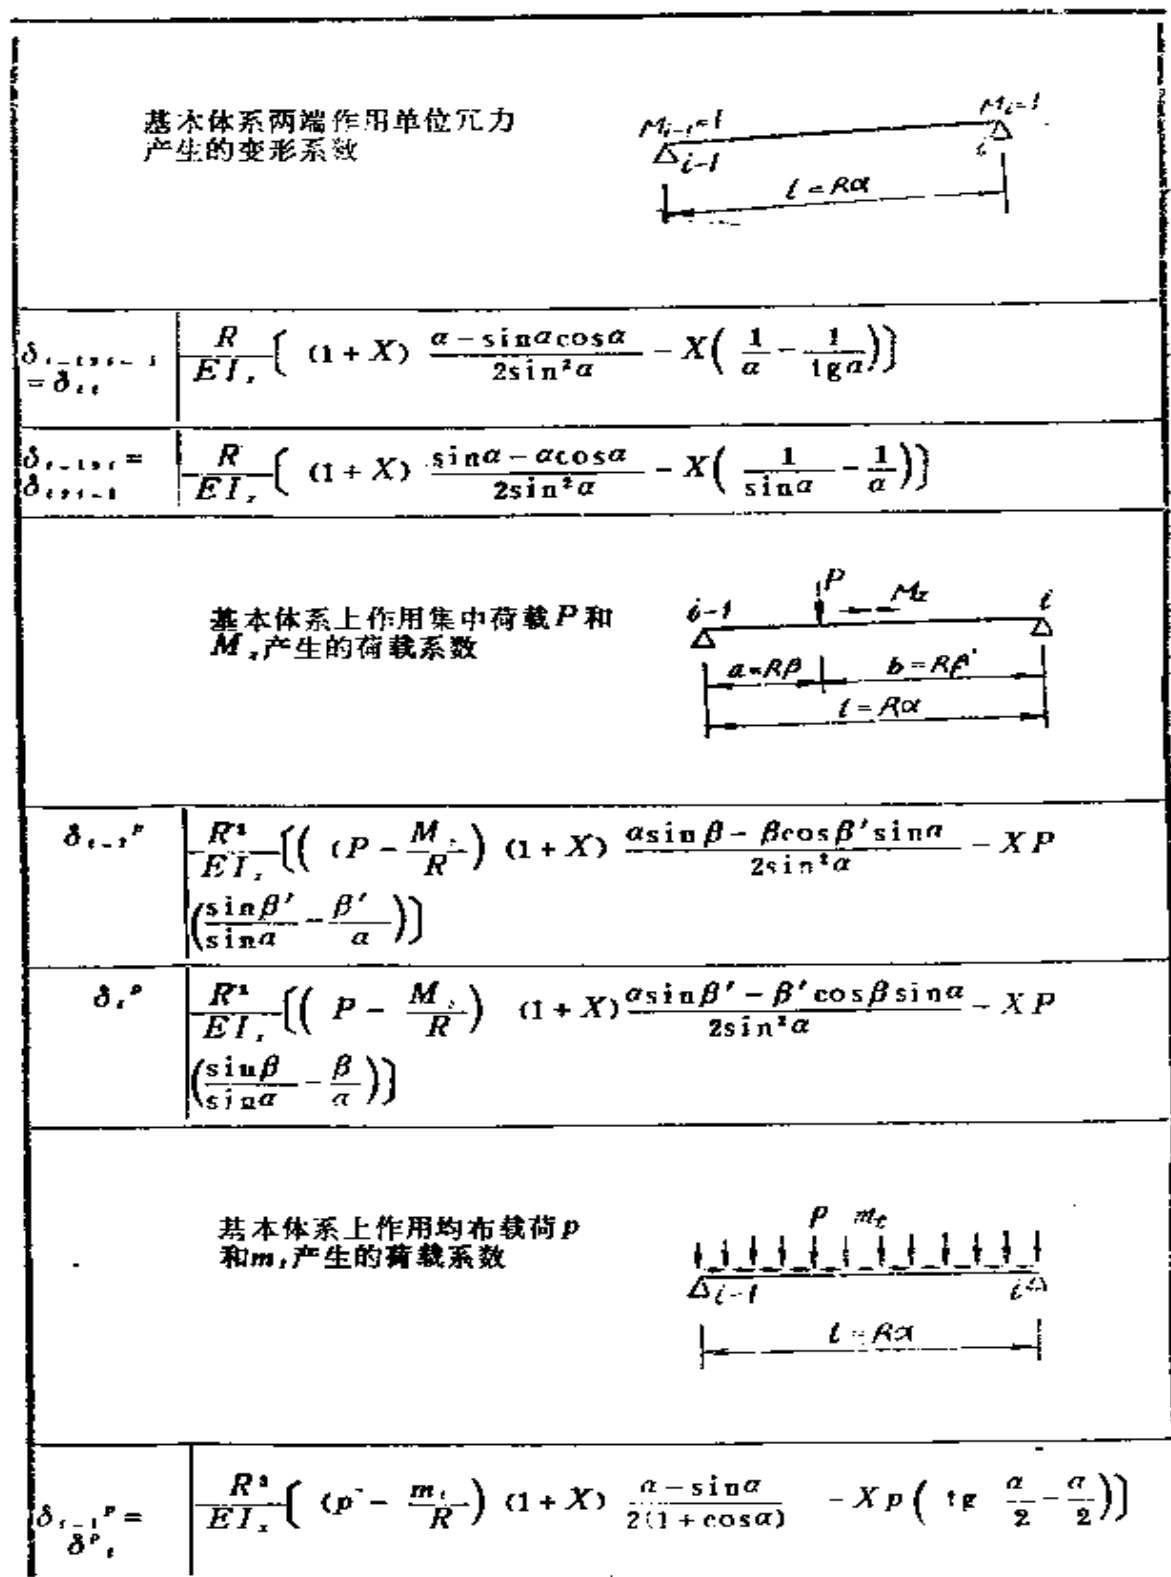 基本体系两端作用单位冗力
产生的变形系数
M_{i-1}=1
M_i=1
i-1
i
l=Rα
δ_{i-1,i-1}
=δ_{ii}
\frac{R}{EI_x}[(1+X)\frac{α-sinαcosα}{2sin²α}-X(\frac{1}{α}-\frac{1}{tgα})]
δ_{i-1,i}=
δ_{i,i-1}
\frac{R}{EI_x}[(1+X)\frac{sinα-αcosα}{2sin²α}-X(\frac{1}{sinα}-\frac{1}{α})]
基本体系上作用集中荷载P和
M_z产生的荷载系数
P
M_z
i-1
i
a=Rβ
b=Rβ'
l=Rα
δ_{i-1}^P
\frac{R²}{EI_x}[((P-\frac{M_z}{R})(1+X)\frac{αsinβ-βcosβ'sinα}{2sin²α}-XP
(\frac{sinβ'}{sinα}-\frac{β'}{α})]
δ_i^P
\frac{R²}{EI_x}[((P-\frac{M_z}{R})(1+X)\frac{αsinβ'-β'cosβsinα}{2sin²α}-XP
(\frac{sinβ}{sinα}-\frac{β}{α})]
基本体系上作用均布载荷p
和m_t产生的荷载系数
p
m_t
i-1
i
l=Rα
δ_{i-1}^P=
δ^P_i
\frac{R³}{EI_x}[(p-\frac{m_t}{R})(1+X)\frac{α-sinα}{2(1+cosα)}-Xp(tg\frac{α}{2}-\frac{α}{2})]